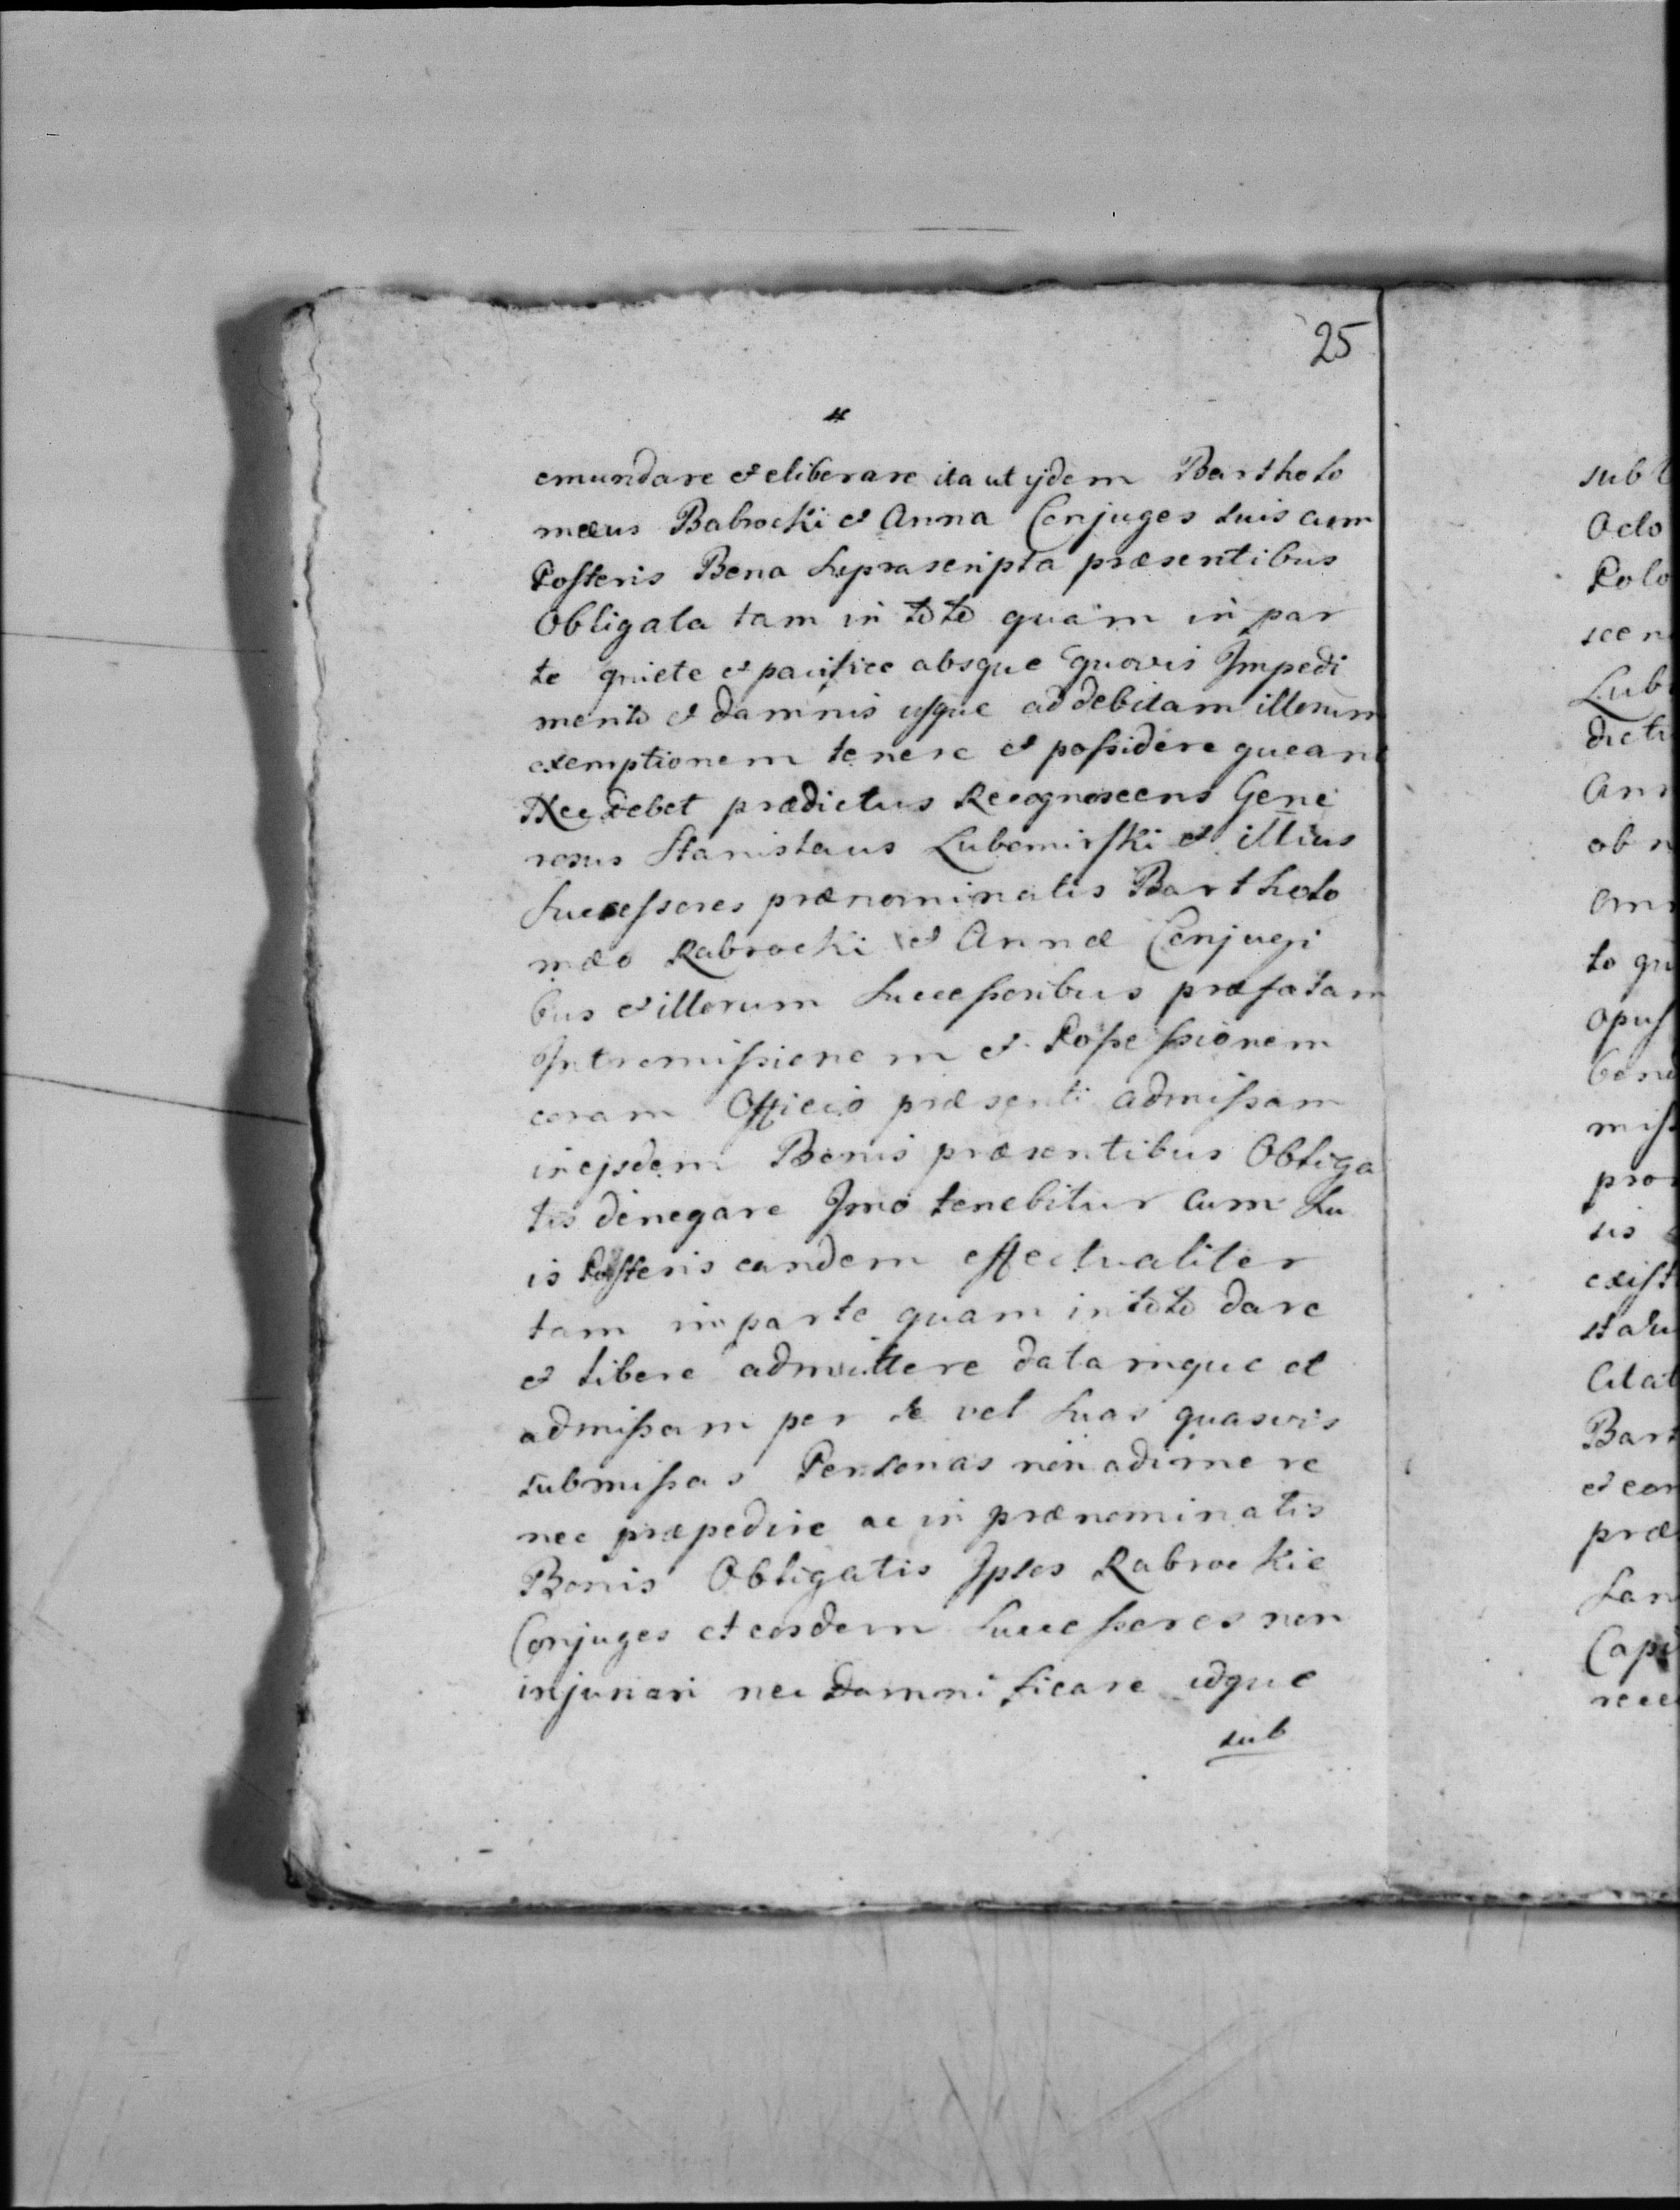 25
emundare et eliberare ita ut ijdem Bartholo
mæus Babrocki et Anna Conjuges suis cum
Posteris Bona Suprascripta præsentibus
Obligata tam in toto quam in par
te quiete et pacifice absque quovis Impedi
mento et damnis usque ad debitam illorum
exemptionem tenere et possidere queant
Nec debet prædictus Recognoscens Gene
rosus Stanislaus Lubomirski et illius
Successores prænominatis Bartholo
mæo Rabrocki et Annæ Conjugi
bus et illorum Successoribus præfatam
Intromissionem et Possessionem
coram Officio præsenti admissam
in ejsdem Bonis præsentibus Obliga
tis denegare Imo tenebitur cum Su
is Posteris eandem effectualiter
tam in parte quam in toto dare
et libere admittere datamque et
admissam per se vel Suas quasvis
submissas Personas non adimere
nec præpedire ac in prænominatis
Bonis Obligatis Ipsos Rabrockie
Conjuges et eosdem Successores non
injuriari nec damnificare idque
sub
sub
Octo
Polo
scen
Lub
dictu
Ann
ob n
Ann
to qu
opus
bona
miss
pro
sis
exist
statu
Citat
Bart
et cor
præ
San
Capi
rece